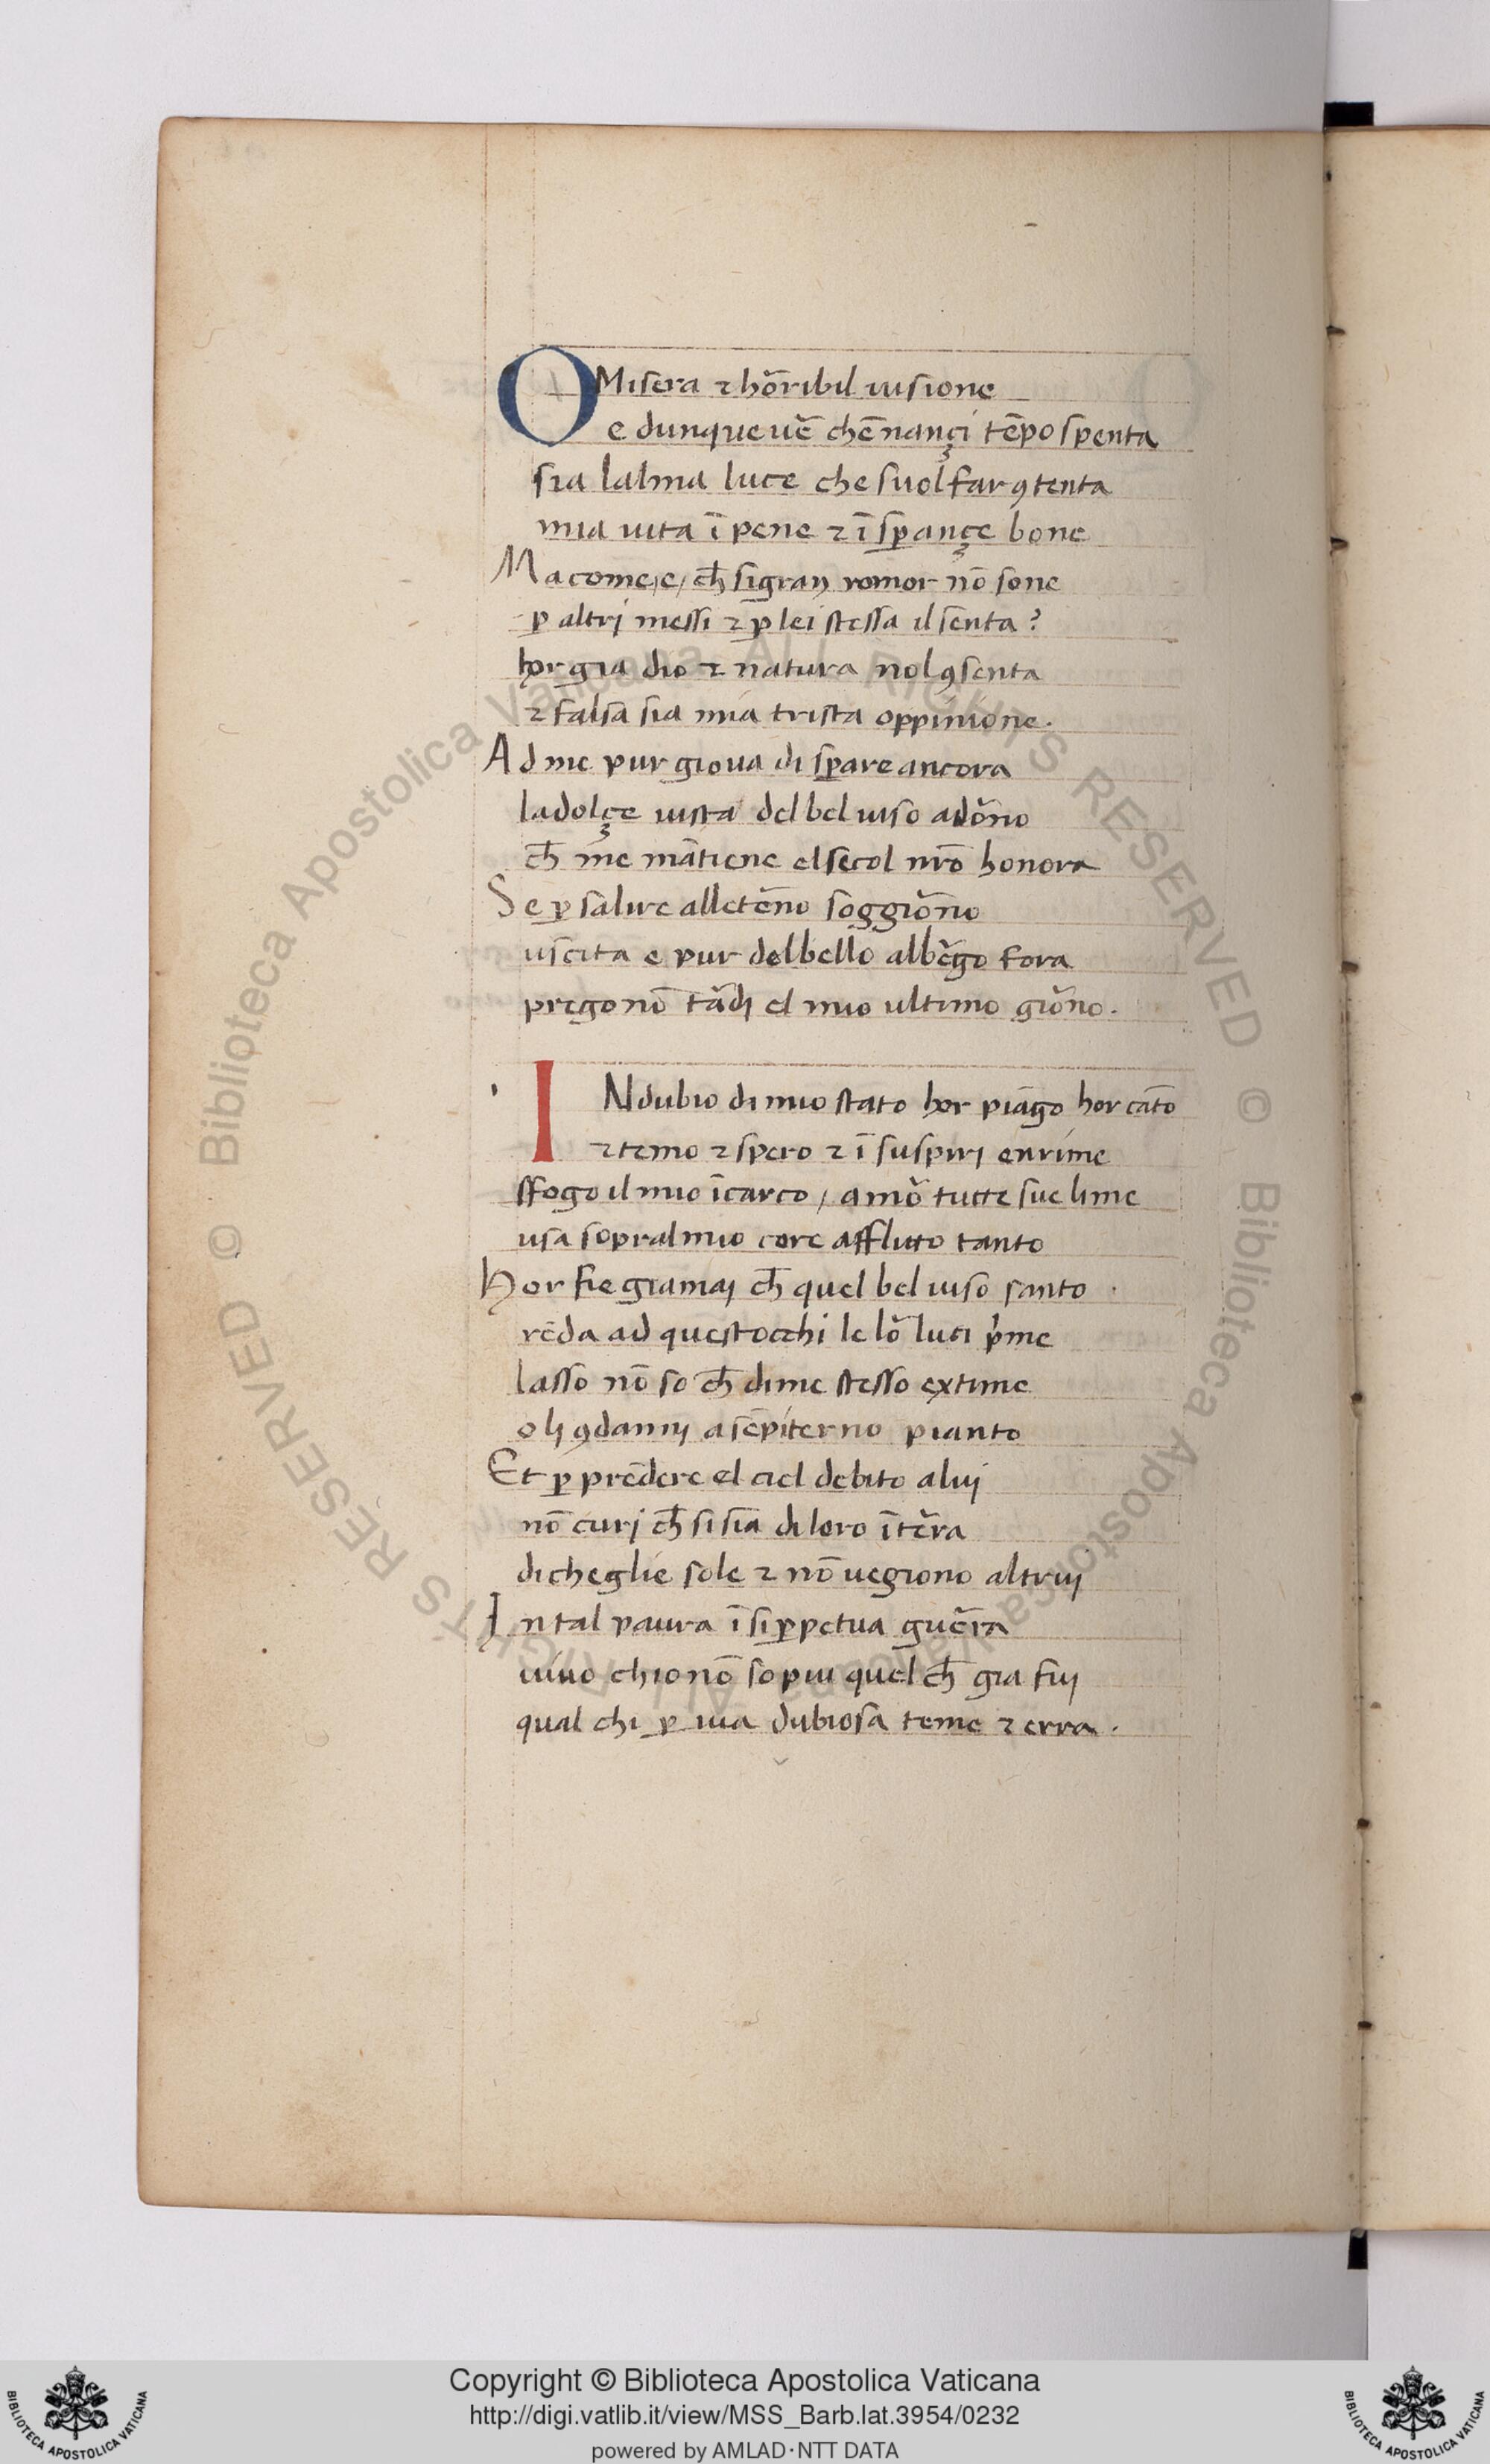 O Misera ⁊ hor̃ibil uisione
e dunque uẽ chẽnançi tẽpo spenta
sia lalma luce che suol far ꝯtenta
mia uita ĩ pene ⁊ ĩ sꝑançe bone
Ma come/e/ ch̄ sigran romor nõ sone
ꝑ altrj messi ⁊ ꝑ lei stessa il senta?
hor gia dio ⁊ natura nol ꝯsenta
⁊ falsa sia mia trista oppinione.
Ad me pur gioua di sꝑare ancora
la dolçe uista del bel uiso adõno
ch̄ me mãtiene el secol nr̃o honora
Se ꝑ salire alletẽno soggiõno
uscita e pur del bello albẽgo fora
prego nõ tãdj el mio ultimo giõno.
IN dubio di mio stato hor piãgo hor cãto
⁊ temo ⁊ spero ⁊ ĩ suspirj enrime
sfogo il mio ĩcarco / amõ tutte sue lime
usa sopral mio core afflitto tanto
Hor fie giamaj ch̄ quel bel uiso santo
rẽda ad questocchi le lõ luci pⁱme
lasso nõ so ch̄ dime stesso extime
o lj ꝯdannj a sẽpiterno pianto
Et ꝑ prẽdere el ciel debito aluj
nõ curj ch̄ si sia di loro ĩtẽra
di cheglie sole ⁊ nõ uegiono altruj
In tal paura ĩ si ꝑpetua guẽra
uiuo chio nõ so piu quel ch̄ gia fuj
qual chi ꝑ uia dubiosa teme ⁊ erra.
© Biblioteca Apostolica Vaticana ALL RIGHTS RESERVED © Biblioteca Apostolica Vaticana ALL RIGHTS RESERVED
BIBLIOTECA APOSTOLICA VATICANA
Copyright © Biblioteca Apostolica Vaticana
http://digi.vatlib.it/view/MSS_Barb.lat.3954/0232
powered by AMLAD·NTT DATA
BIBLIOTECA APOSTOLICA VATICANA